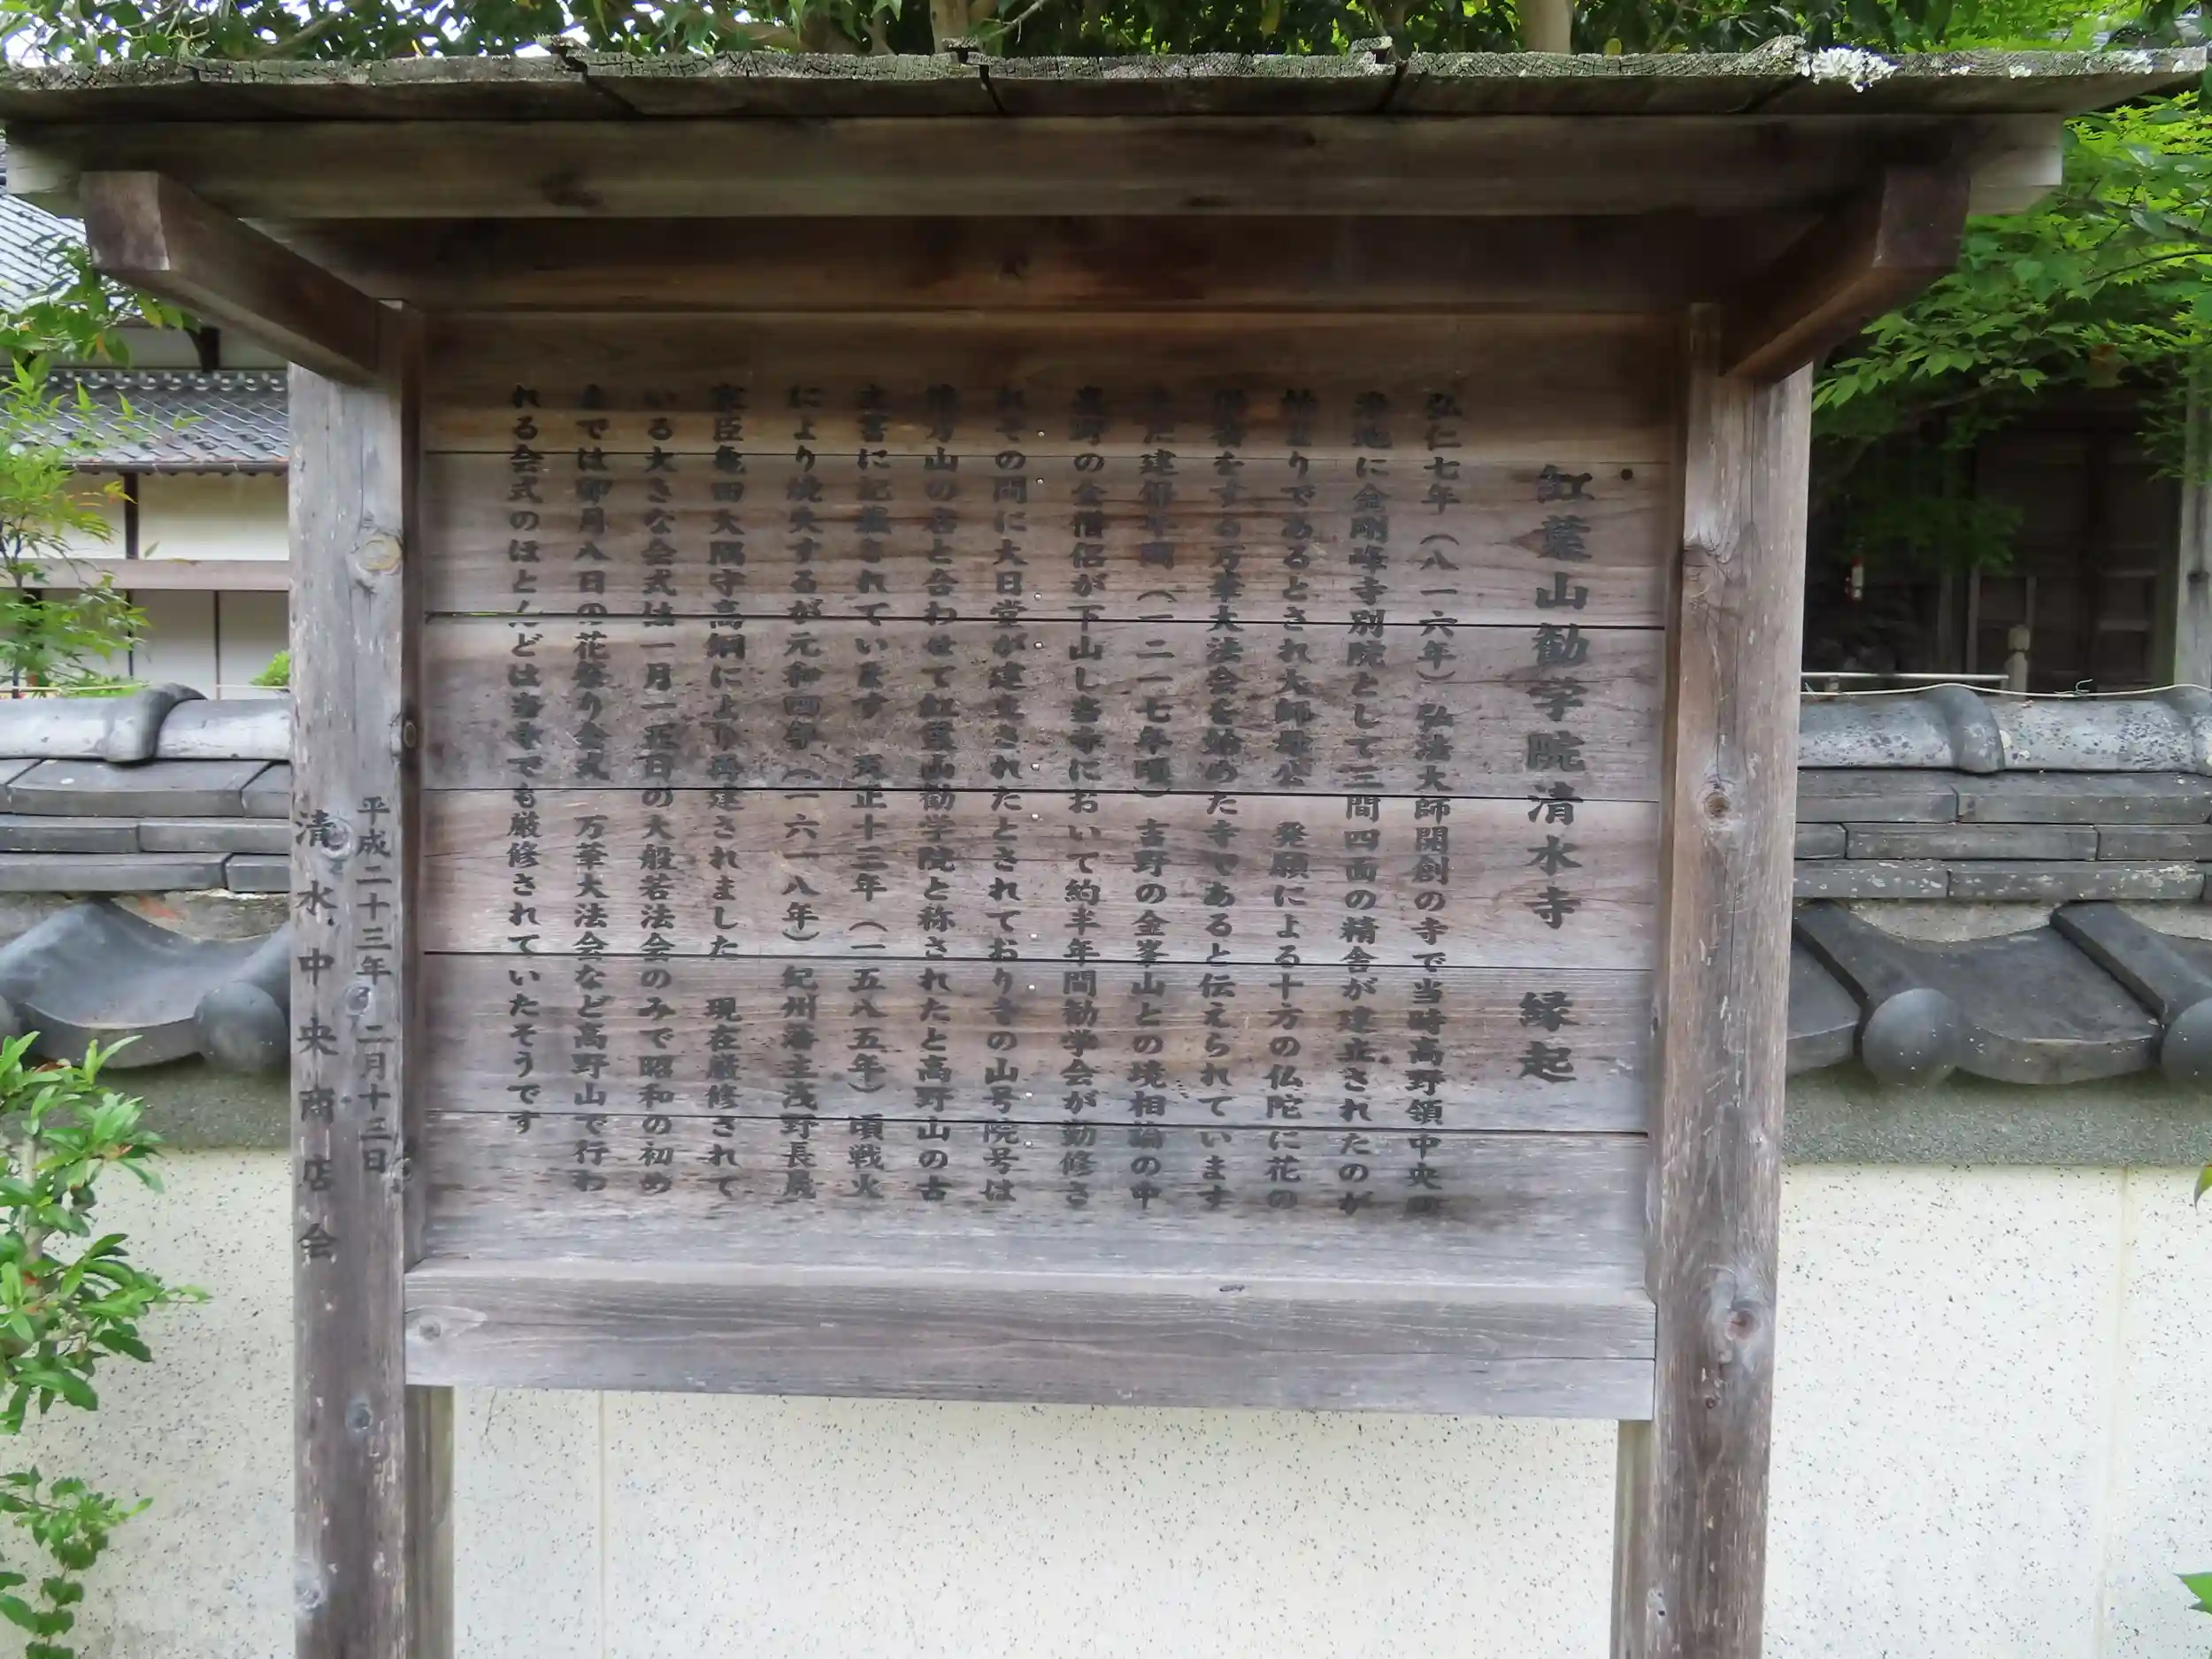 紅葉山勧学院清水寺 縁起
弘仁七年（八一六年）弘法大師開創の寺で当時高野領中央の
地に金剛峰寺別院として三間四面の精舎が建立されたのが
始まりであるとされ大師母公 発願による十方の仏陀に花の
供養をする万華大法会を始めた寺であると伝えられています
また建保年間（一二一七年頃）吉野の金峯山との境相論の中
高野の全僧侶が下山し当寺において約半年間勧学会が勤修さ
れその間に大日堂が建立されたとされており寺の山号院号は
山の名と合わせて紅葉山勧学院と称されたと高野山の古
文書に記載されています 天正十三年（一五八五年）頃戦火
により焼失するが元和四年（一六一八年）紀州藩主浅野長晟
家臣亀田大隅守高綱により再建されました 現在厳修されて
いる大きな会式は一月一五日の大般若法会のみで昭和の初め
までは卯月八日の花祭り会式 万華大法会など高野山で行わ
れる会式のほとんどは当寺でも厳修されていたそうです
平成二十三年 二月十三日
清水中央商店会